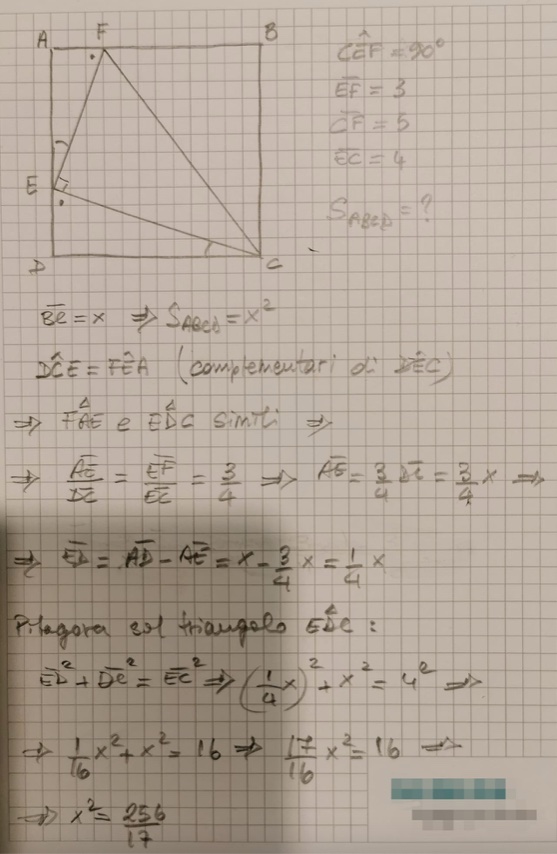 A F B
E
D C
CÊF = 90°
E̅F̅ = 3
C̅F̅ = 5
E̅C̅ = 4
S_ABCD = ?
B̅C̅ = x ⇒ S_ABCD = x²
DĈE = FÊA (complementari di DÊC)
⇒ FÂE e ED̂C simili ⇒
⇒ A̅E̅/D̅C̅ = E̅F̅/E̅C̅ = 3/4 ⇒ A̅E̅ = 3/4 D̅C̅ = 3/4 x ⇒
⇒ E̅D̅ = A̅D̅ - A̅E̅ = x - 3/4 x = 1/4 x
Pitagora sul triangolo ED̂C :
E̅D̅² + D̅C̅² = E̅C̅² ⇒ (1/4 x)² + x² = 4² ⇒
⇒ 1/16 x² + x² = 16 ⇒ 17/16 x² = 16 ⇒
⇒ x² = 256/17